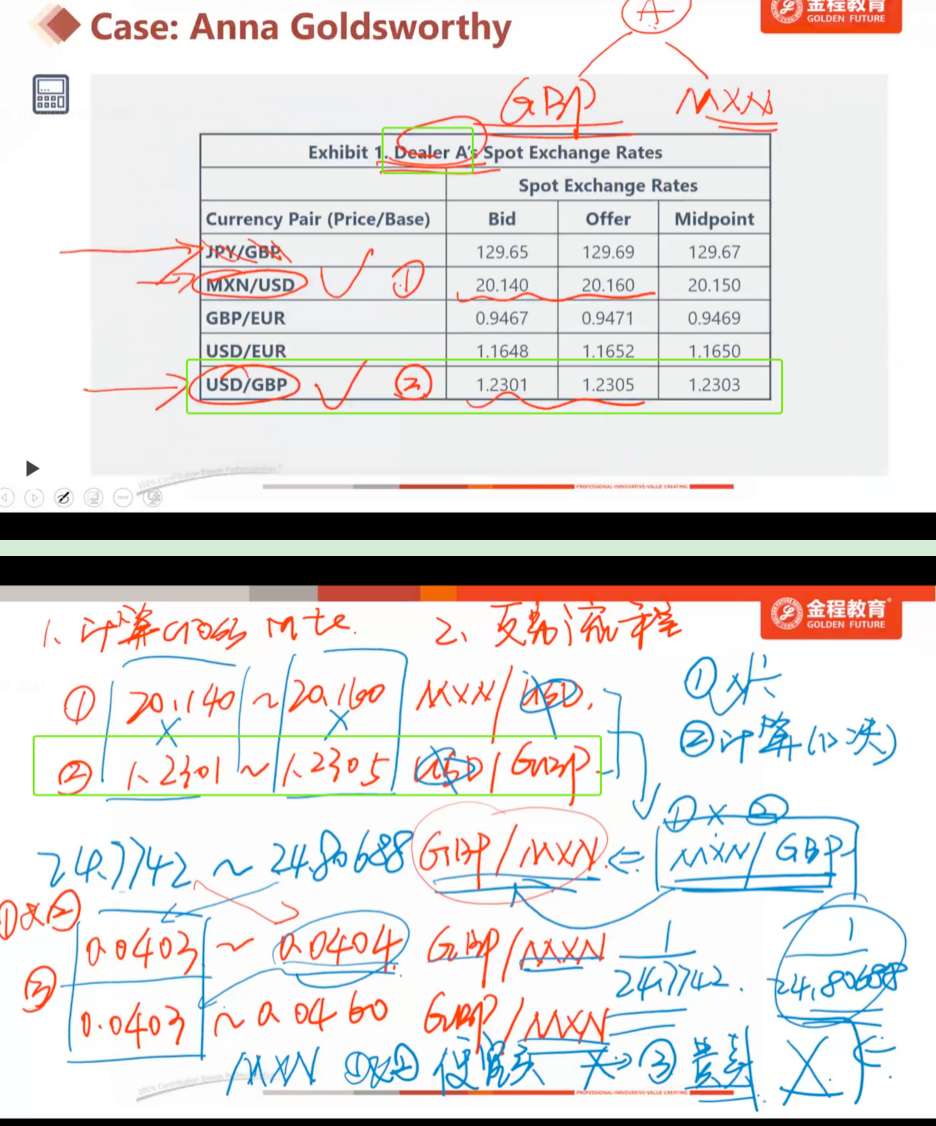 Case: Anna Goldsworthy
金程教育
GOLDEN FUTURE
A
GBP MXN
Exhibit 1. Dealer A's Spot Exchange Rates
Spot Exchange Rates
Currency Pair (Price/Base) Bid Offer Midpoint
JPY/GBP 129.65 129.69 129.67
MXN/USD ① 20.140 20.160 20.150
GBP/EUR 0.9467 0.9471 0.9469
USD/EUR 1.1648 1.1652 1.1650
USD/GBP ② 1.2301 1.2305 1.2303
金程教育
GOLDEN FUTURE
1、计算cross rate. 2、交易流程
① 20.140 ~ 20.160 MXN/USD.
② 1.2301 ~ 1.2305 USD/GBP
①
②计算(1次)
①×②
24.7742 ~ 24.80688 GBP/MXN ⇐ MXN/GBP
①×②
0.0403 ~ 0.0404 GBP/MXN
1/24.7742. 1/24.80688
③
0.0403 ~ 0.0460 GBP/MXN
MXN ①×② 便宜买 → ③ 贵卖 ×